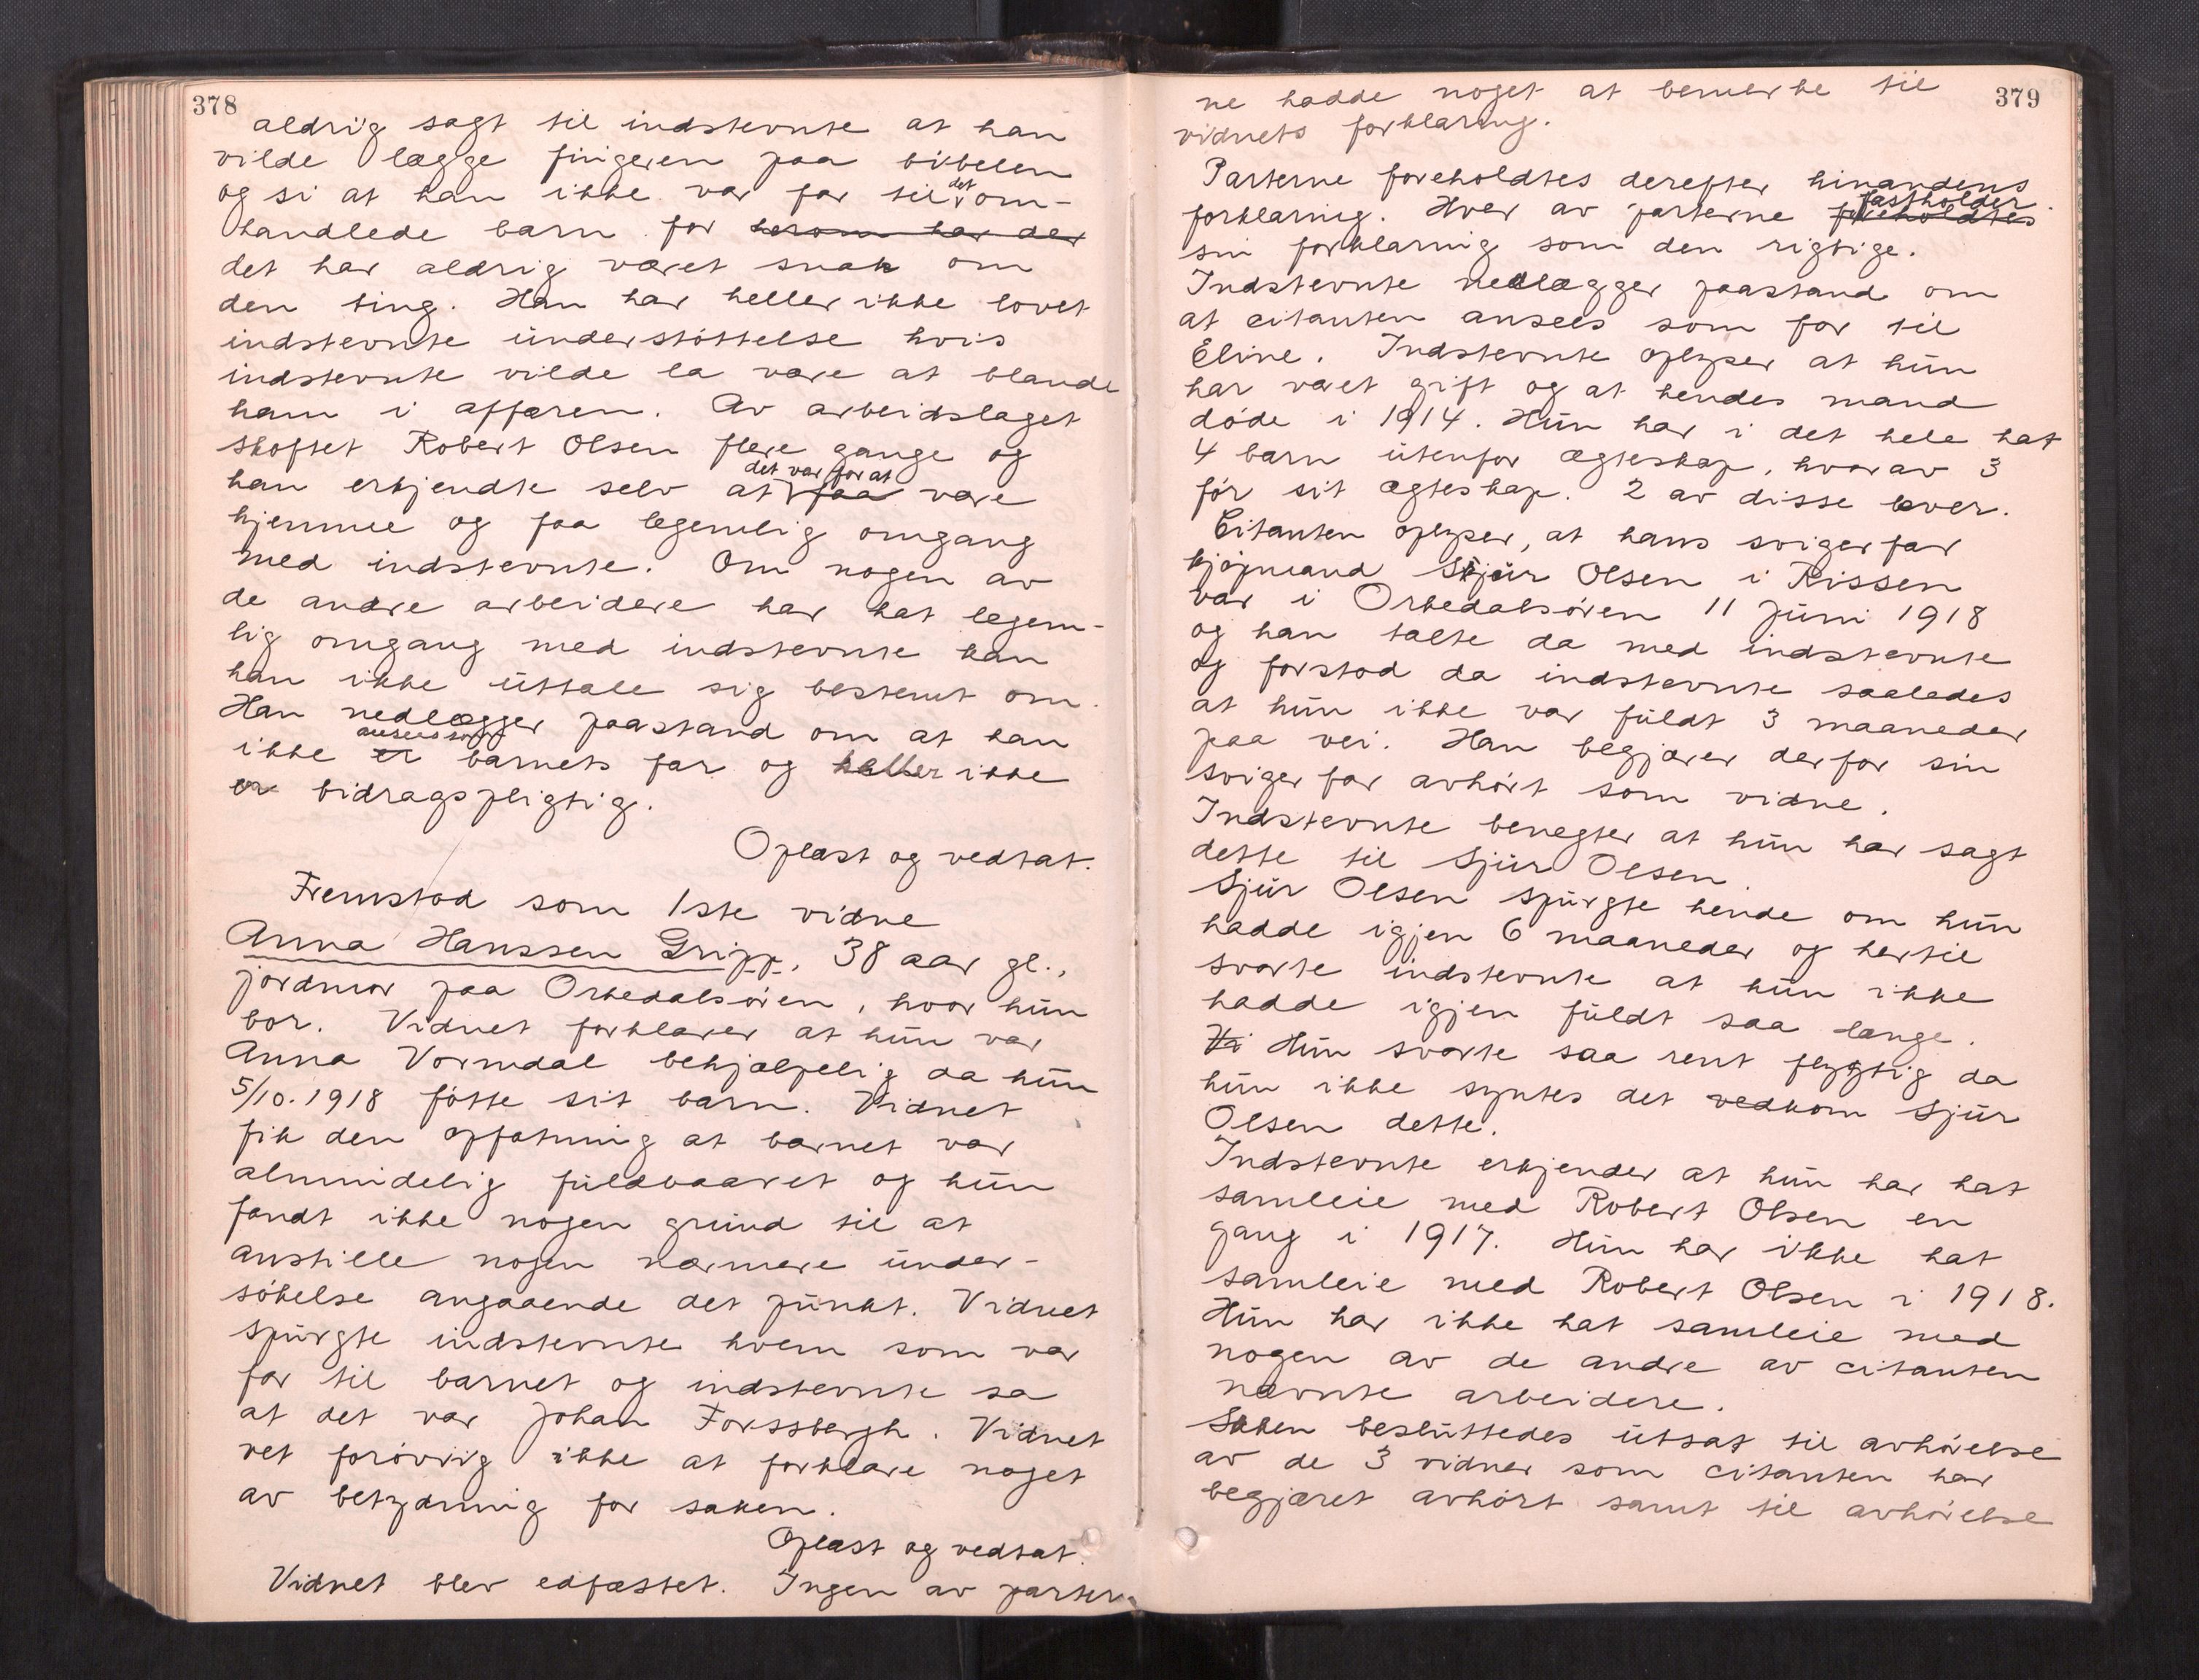 378
aldrig sagt til indstevnte at han
vilde lægge fingeren paa bibelen
og si at han ikke var far til det om-
handlede barn for herom har der
det har aldrig været snak om
den ting. Han har heller ikke lovet
indstevnte understøttelse hvis
indstevnte vilde la være at blande
ham i affæren. Av arbeidslaget
skoftet Robert Olsen flere gange og
han erkjendte selv at det var for at faa være
hjemme og faa legemlig omgang
med indstevnte. Om nogen av
de andre arbeidere har hat legem-
lig omgang med indstevnte kan
han ikke uttale sig bestemt om.
Han nedlægger paastand om at han
ikke er ansees som barnets far og heller ikke
er bidragspligtig.
Oplæst og vedtat.
Fremstod som 1ste vidne
Anna Hanssen Gripp, 38 aar gl.,
jordmor paa Orkedalsøren, hvor hun
bor. Vidnet forklarer at hun var
Anna Vormdal behjælpelig da hun
5/10.1918 føtte sit barn. Vidnet
fik den opfatning at barnet var
almindelig fuldbaaret og hun
fandt ikke nogen grund til at
anstille nogen nærmere under-
søkelse angaaende det punkt. Vidnet
spurgte indstevnte hvem som var
far til barnet og indstevnte sa
at det var Johan Forssbergh. Vidnet
vet forøvrig ikke at forklare noget
av betydning for saken.
Oplæst og vedtat.
Vidnet blev edfæstet. Ingen av parter-
379
ne hadde noget at bemerke til
vidnets forklaring.
Parterne foreholdtes derefter hinandens
forklaring. Hver av parterne foreholdtes fastholder
sin forklaring som den rigtige.
Indstevnte nedlægger paastand om
at citanten ansees som far til
Eline. Indstevnte oplyser at hun
har været gift og at hendes mand
døde i 1914. Hun har i det hele hat
4 barn utenfor ægteskap, hvorav 3
før sit ægteskap. 2 av disse lever.
Citanten oplyser, at hans svigerfar
kjøpmand Sjur Olsen i Rissen
var i Orkedalsøren 11 juni 1918
og han talte da med indstevnte
og forstod da indstevnte saaledes
at hun ikke var fuldt 3 maaneder
paa vei. Han begjærer derfor sin
svigerfar avhørt som vidne.
Indstevnte benegter at hun har sagt
dette til Sjur Olsen.
Sjur Olsen spurgte hende om hun
hadde igjen 6 maaneder og hertil
svarte indstevnte at hun ikke
hadde igjen fuldt saa længe.
Vi Hun svarte saa rent flygtig da
hun ikke syntes det vedkom Sjur
Olsen dette.
Indstevnte erkjender at hun har hat
samleie med Robert Olsen en
gang i 1917. Hun har ikke hat
samleie med Robert Olsen i 1918.
Hun har ikke hat samleie med
nogen av de andre av citanten
nævnte arbeidere.
Saken besluttedes utsat til avhørelse
av de 3 vidner som citanten har
begjæret avhørt samt til avhørelse